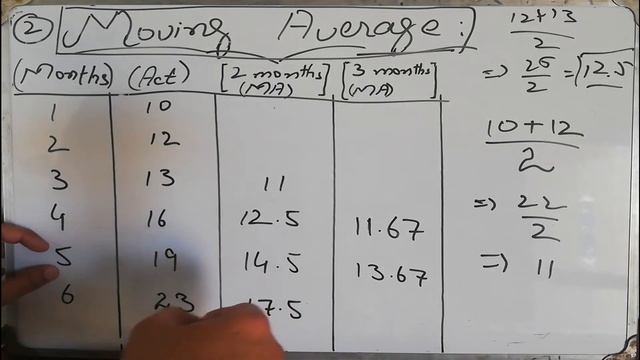 ② Moving Average:
(Months) (Act) [2 months] (MA) [3 months] (MA)
1 10
2 12
3 13 11
4 16 12.5 11.67
5 19 14.5 13.67
6 23 17.5
12+13
2
=> 25/2 = 12.5
10+12
2
=> 22/2
=> 11